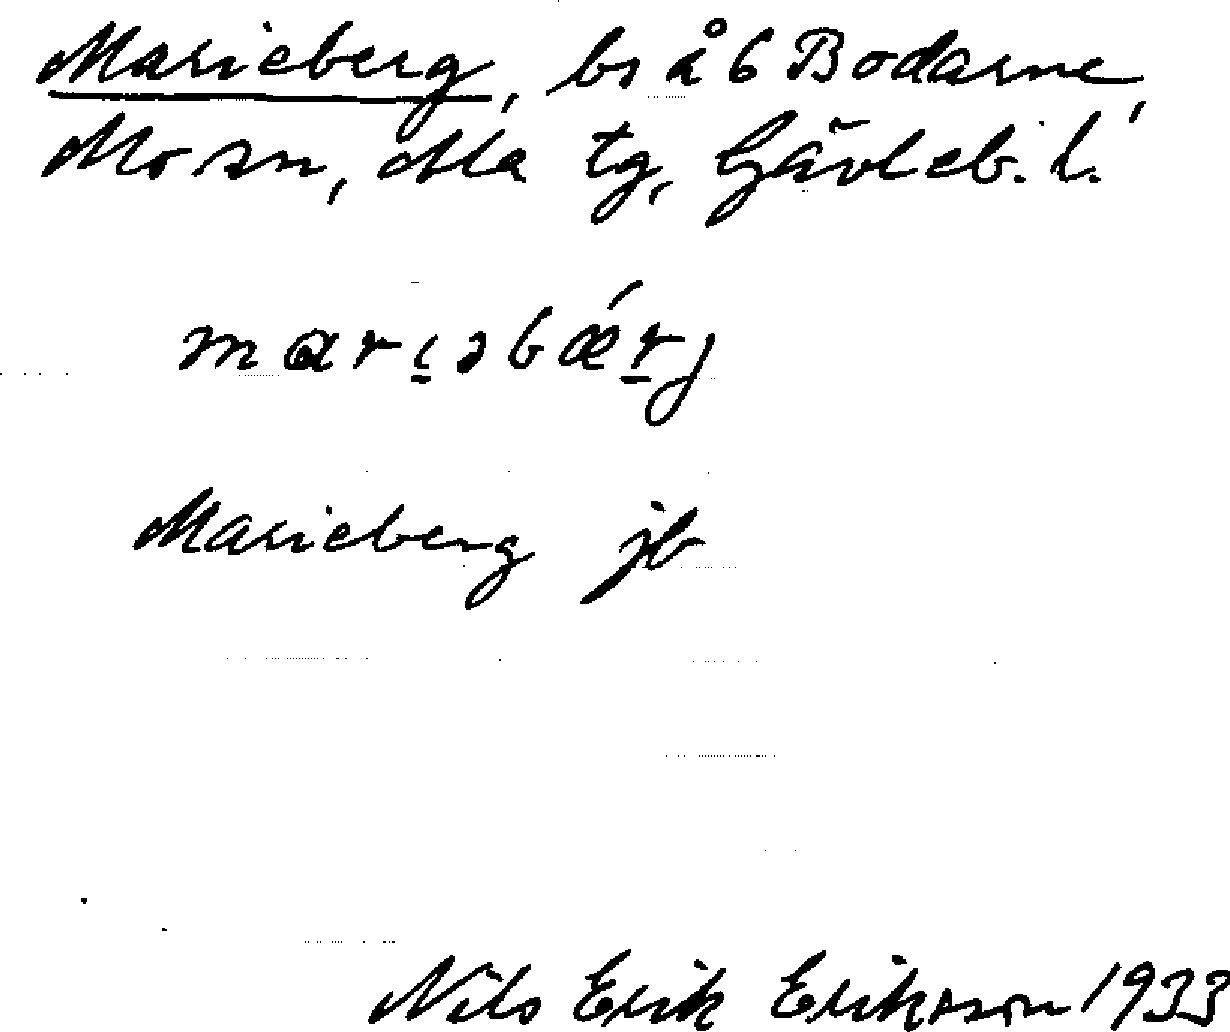 Marieberg, bs å 6 Bodarne,
Mo sn, Ala tg, Gävleb. l.
marι̱əbǽṟj
Marieberg jb
Nils Erik Erikson 1933